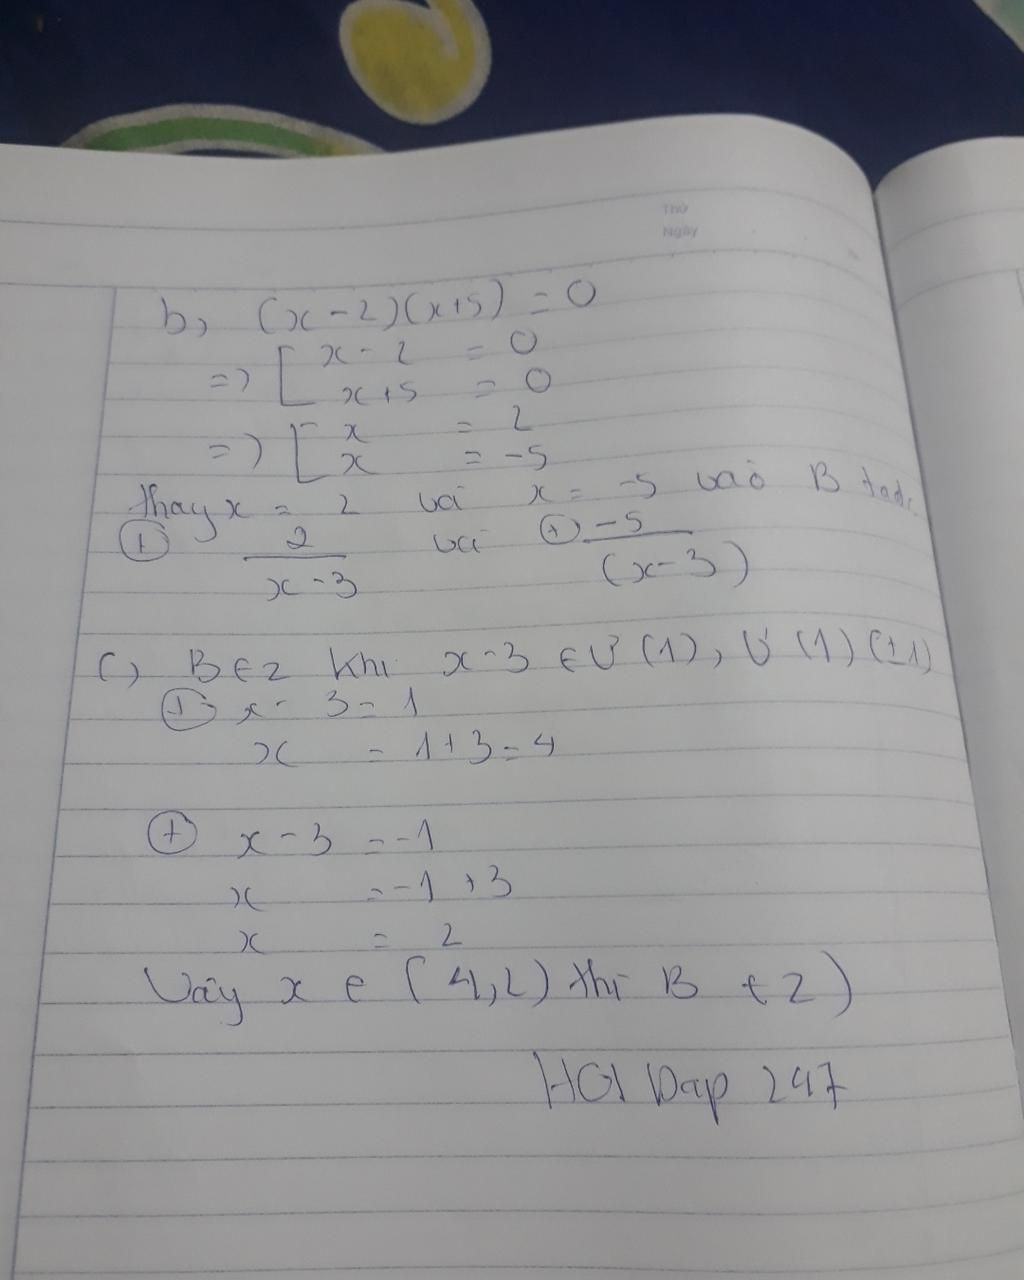 Thứ
Ngày
b, (x-2)(x+5) = 0
=> [ x-2 = 0
x+5 = 0
=> [ x = 2
x = -5
thay x = 2 và x = -5 vào B
⊕ 2/(x-3) và ⊕ -5/(x-3)
c, B ∈ Z khi x-3 ∈ Ư (1), Ư (1) (±1)
⊕ x - 3 = 1
x = 1+3 = 4
⊕ x-3 = -1
x = -1 +3
x = 2
Vậy x ∈ (4,2) thì B ∈ Z)
HOI Dap 247